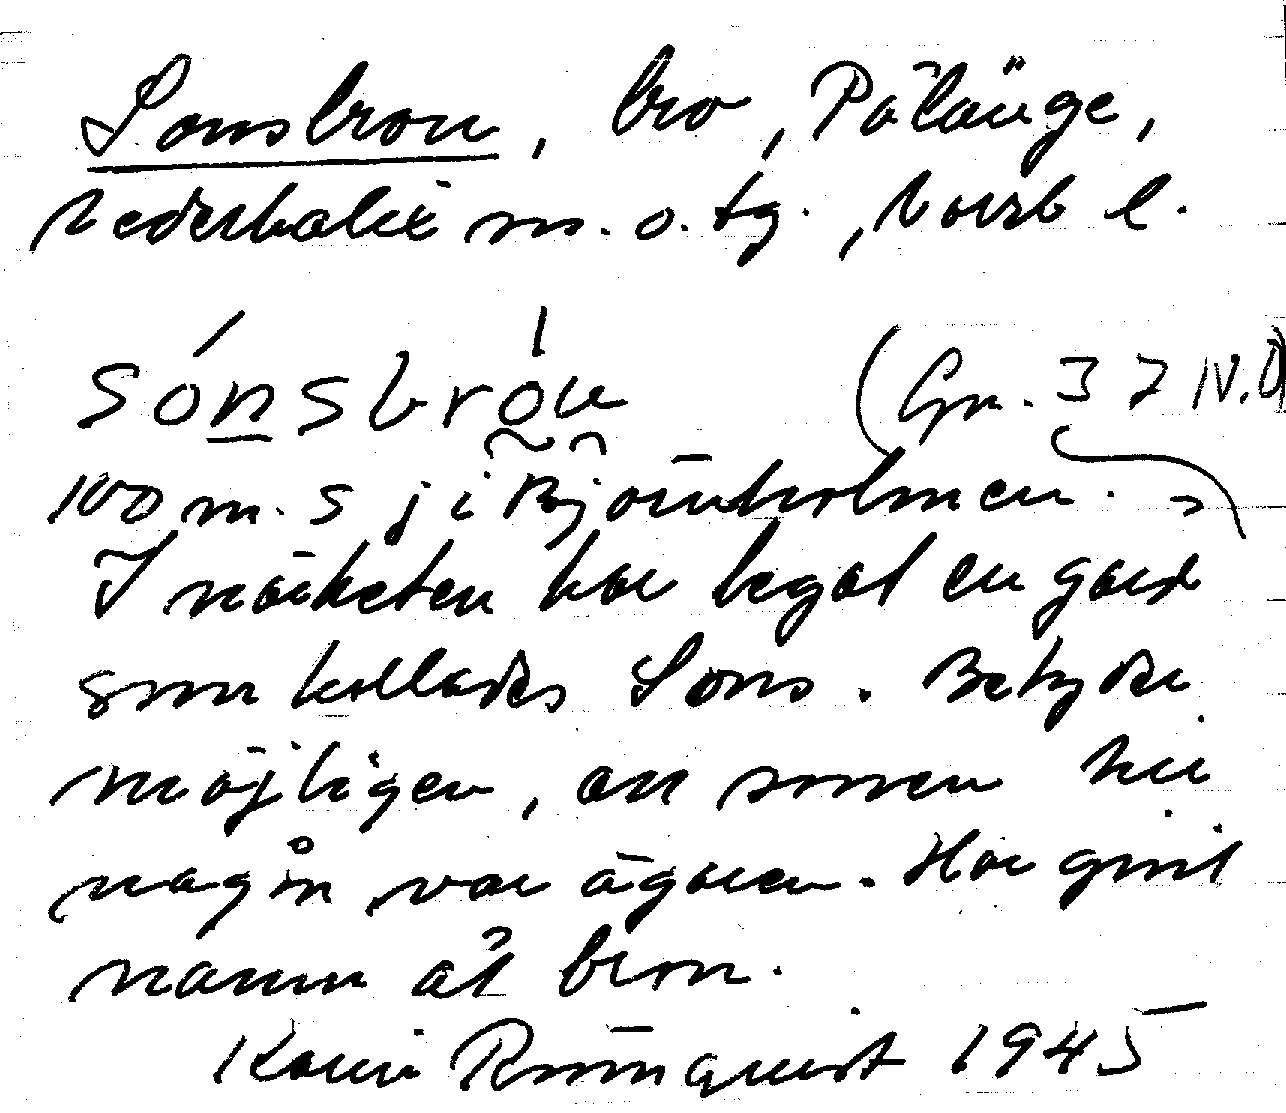 Sonsbron, bro, Pålänge,
Nederkalix sn. o. tg., Norrb l.
sónsbròn (Gn. 37 IV.D)
100 m. S j i Björnholmen.
I närheten har legat en gård
som kallades Sons. Betyder
möjligen, att sonen till
någon var ägaren. Har givit
namn åt bron.
Karin Rönnquist 1945